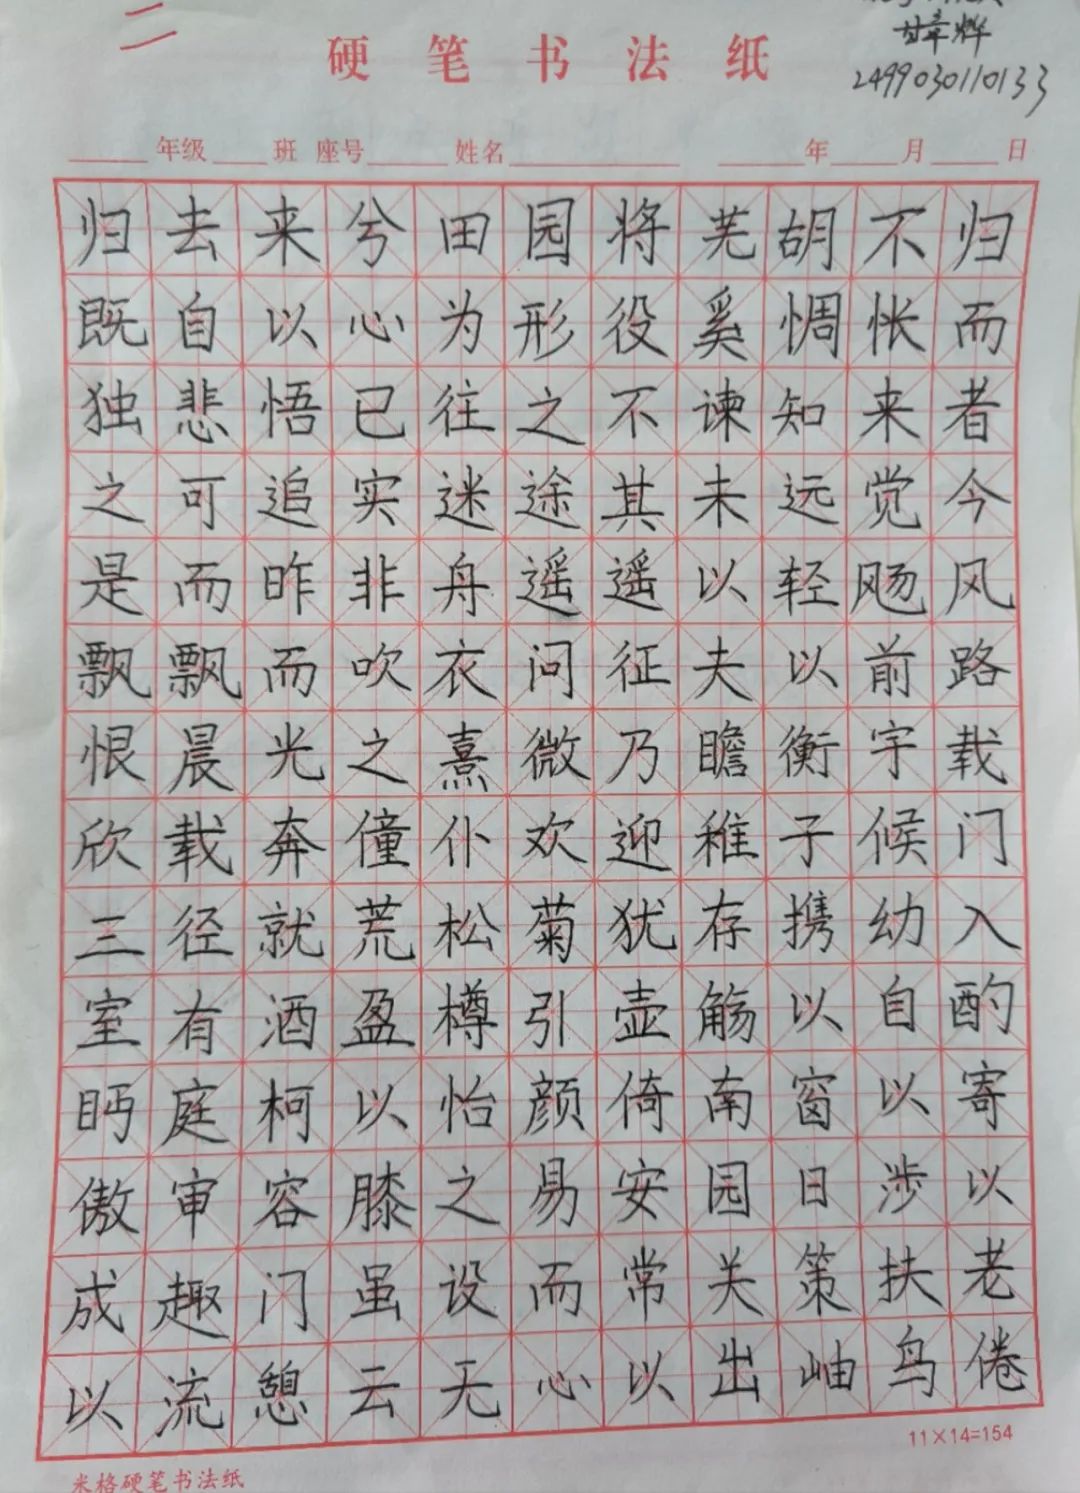 硬笔书法纸
2499030110133
年级 班 座号 姓名 年 月 日
归去来兮田园将芜胡不归
既自以心为形役奚惆怅而
独悲悟已往之不谏知来者
之可追实迷途其未远觉今
是而昨非舟遥遥以轻飏风
飘飘而吹衣问征夫以前路
恨晨光之熹微乃瞻衡宇载
欣载奔僮仆欢迎稚子候门
三径就荒松菊犹存携幼入
室有酒盈樽引壶觞以自酌
眄庭柯以怡颜倚南窗以寄
傲审容膝之易安园日涉以
成趣门虽设而常关策扶老
以流憩云无心以出岫鸟倦
11×14=154
米格硬笔书法纸